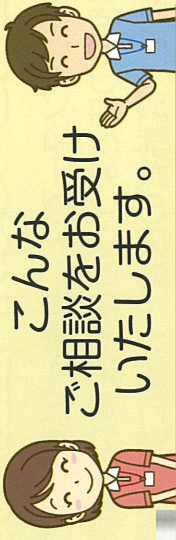 こんな
ご相談をお受け
いたします。